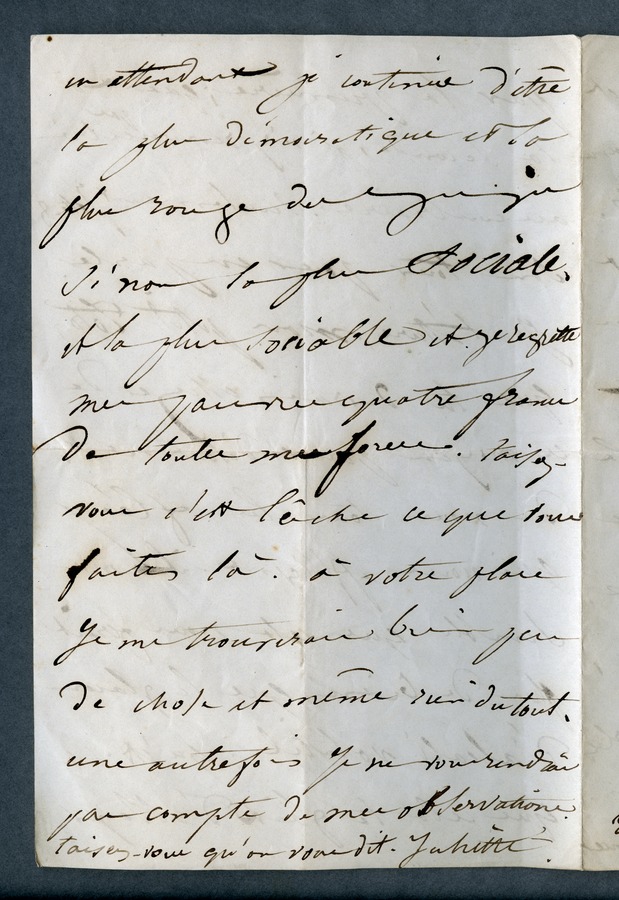 en attendant je continue d'être
la plus démocratique et la
plus rouge des
si non la plus sociale,
et la plus sociable et je regrette
mes pauvres quatre francs
de toutes mes forces. taisez-
vous c'est lâche ce que vous
faites là. à votre place
je me trouverais bien peu
de chose et même rien du tout.
une autre fois je ne vous rendrai
pas compte de mes observations.
taisez-vous qu'on vous dit. Juliette